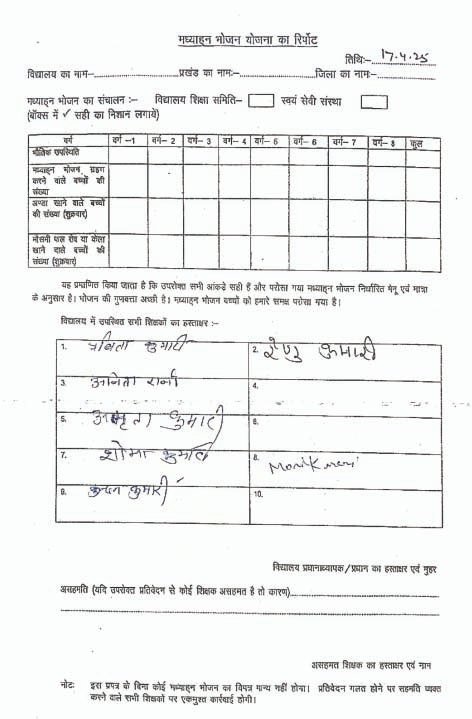 मध्याहन भोजन योजना का रिर्पोट
तिथि:- 17.4.25
विद्यालय का नाम–........................प्रखंड का नामः–........................जिला का नामः–................
मध्याहन भोजन का संचालन :– विद्यालय शिक्षा समिति– स्वयं सेवी संस्था
(बॉक्स में ✓ सही का निशान लगावें)
वर्ग वर्ग –1 वर्ग– 2 वर्ग– 3 वर्ग– 4 वर्ग– 5 वर्ग– 6 वर्ग– 7 वर्ग– 8 कुल
भौतिक उपस्थिति
मध्याहन भोजन ग्रहण
करने वाले बच्चों की
संख्या
अण्डा खाने वाले बच्चों
की संख्या (शुक्रवार)
मौसमी फल सेव या केला
खाने वाले बच्चों की
संख्या (शुक्रवार)
यह प्रमाणित किया जाता है कि उपरोक्त सभी आंकड़े सही हैं और परोसा गया मध्याहन भोजन निर्धारित मेनू एवं मात्रा
के अनुसार है। भोजन की गुणवत्ता अच्छी है। मध्याहन भोजन बच्चों को हमारे समक्ष परोसा गया है।
विद्यालय में उपस्थित सभी शिक्षकों का हस्ताक्षर :–
1. कुमारी 2. रेणु कुमारी
3. अनिता 4.
5. अमृता कुमारी 6.
7. शोभा कुमारी 8.
9. कुमारी 10.
विद्यालय प्रधानाध्यापक/प्रधान का हस्ताक्षर एवं मुहर
असहमति (यदि उपरोक्त प्रतिवेदन से कोई शिक्षक असहमत है तो कारण)................................
असहमत शिक्षक का हस्ताक्षर एवं नाम
नोटः इस प्रपत्र के बिना कोई मध्याहन भोजन का विपत्र मान्य नहीं होगा। प्रतिवेदन गलत होने पर सहमति व्यक्त
करने वाले सभी शिक्षकों पर एकमुश्त कार्रवाई होगी।